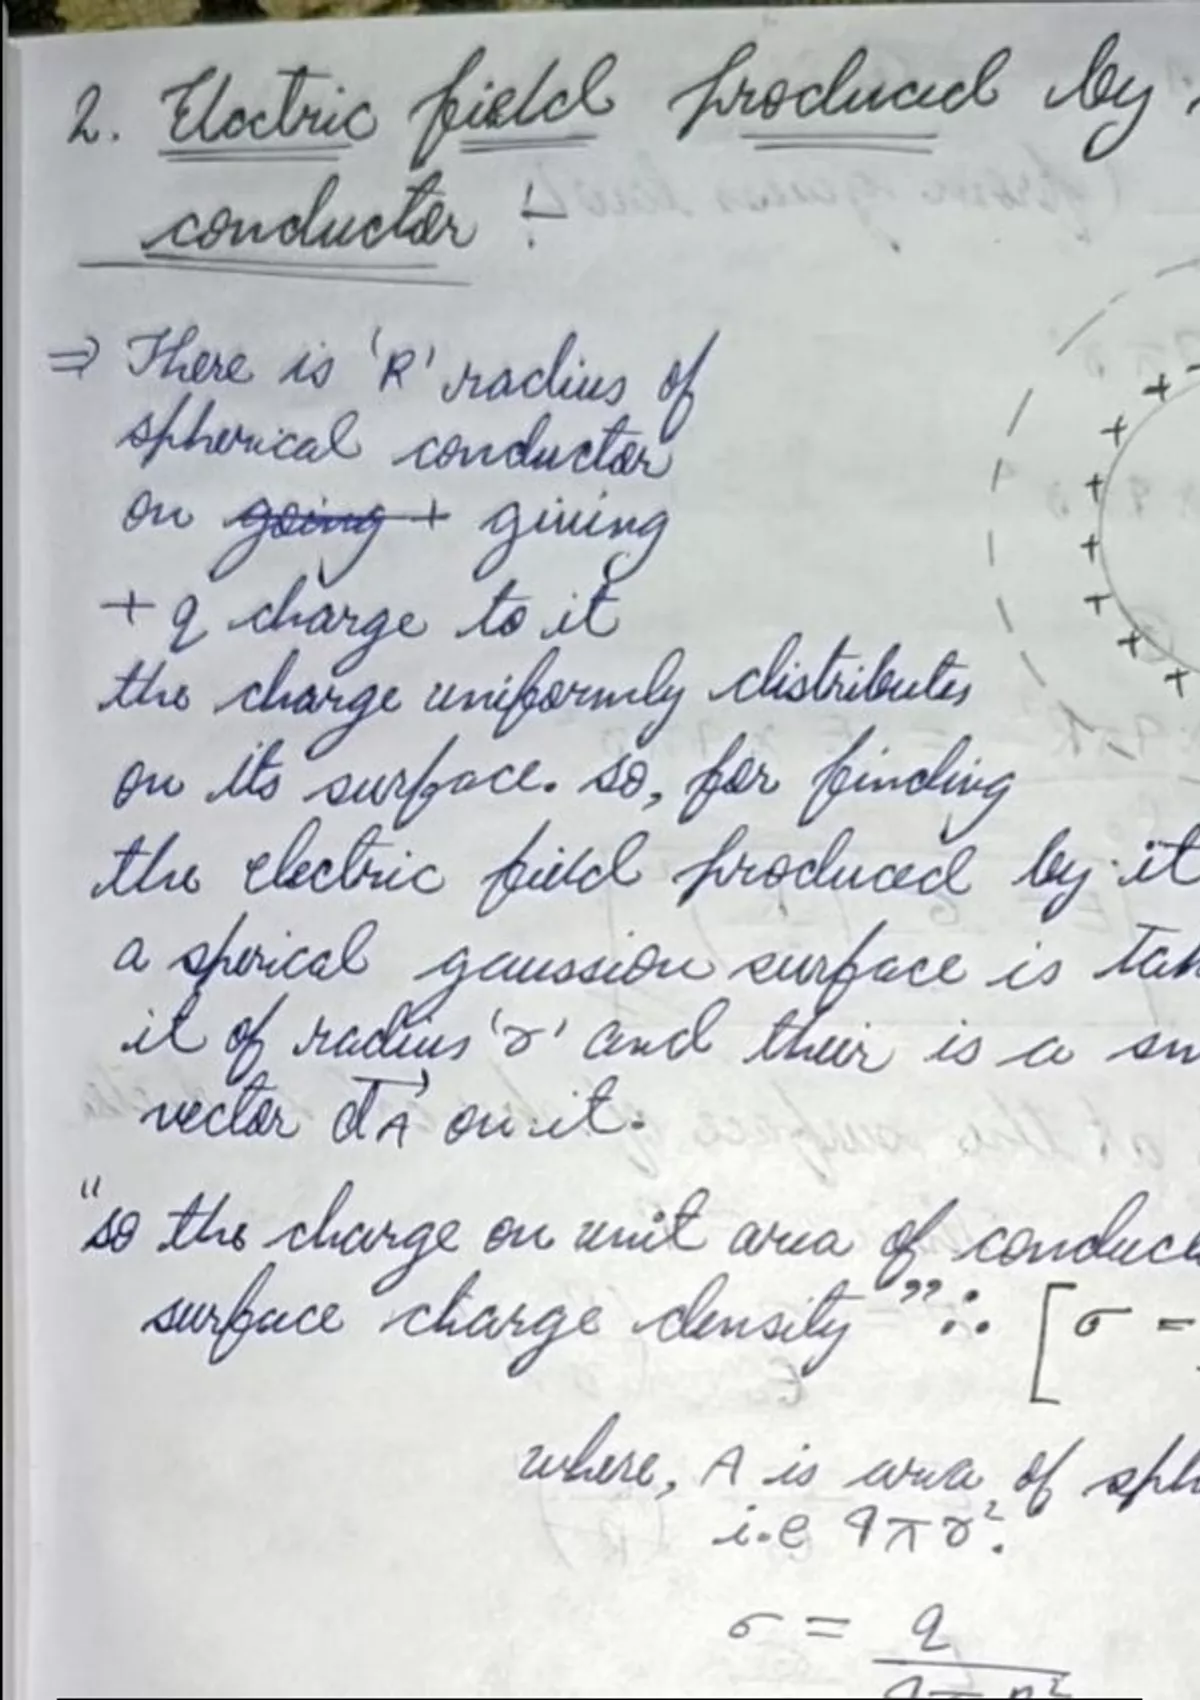 2. Electric field produced by
conductor :-
⇒ There is 'R' radius of
spherical conductor
on going + giving
+q charge to it
the charge uniformly distributes
on its surface. so, for finding
the electric field produced by it
a sperical gaussion surface is
it of radius 'r' and their is a
vector dA→ on it.
"so the charge on unit area of
surface charge density" ∴ [σ =
where, A is area of
i.e 4πr².
σ = q